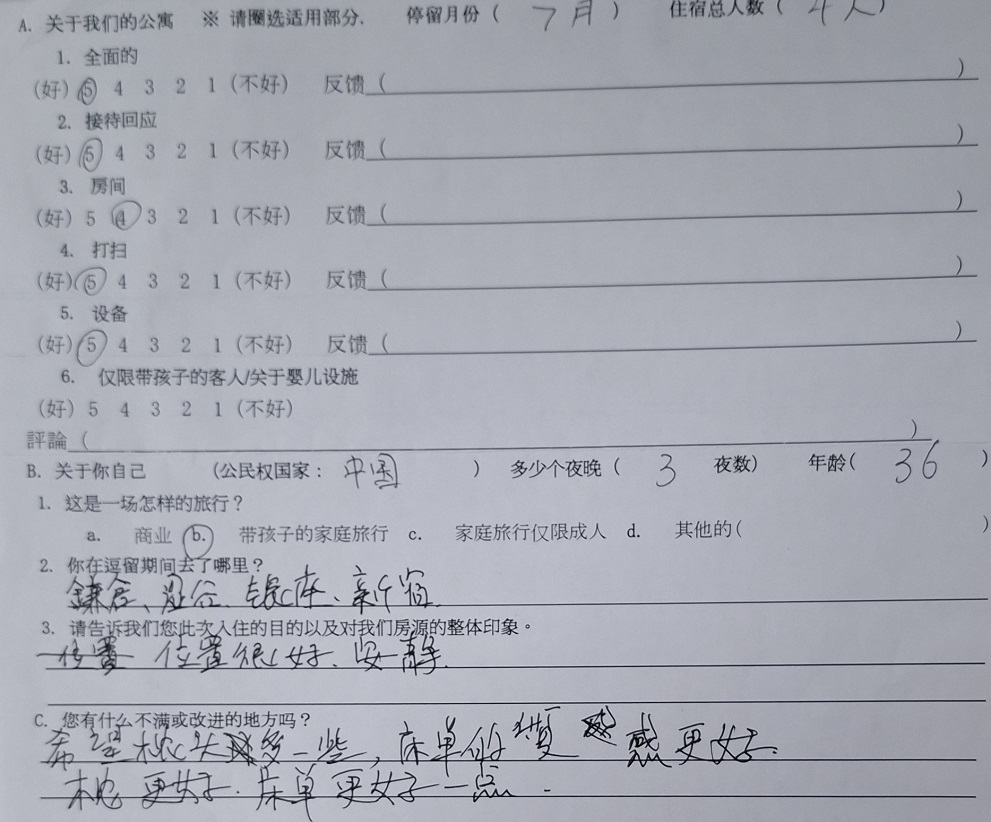 A. 关于我们的公寓 ※ 请圈选适用部分. 停留月份（ 7月 ） 住宿总人数（ 4人 ）
1. 全面的
（好）5 4 3 2 1（不好） 反馈（ ）
2. 接待回应
（好）5 4 3 2 1（不好） 反馈（ ）
3. 房间
（好）5 4 3 2 1（不好） 反馈（ ）
4. 打扫
（好）5 4 3 2 1（不好） 反馈（ ）
5. 设备
（好）5 4 3 2 1（不好） 反馈（ ）
6. 仅限带孩子的客人/关于婴儿设施
（好）5 4 3 2 1（不好）
評論（ ）
B. 关于你自己 （公民权国家： 中国 ） 多少个夜晚（ 3 夜数） 年龄（ 36 ）
1. 这是一场怎样的旅行？
a. 商业 b. 带孩子的家庭旅行 c. 家庭旅行仅限成人 d. 其他的（ ）
2. 你在逗留期间去了哪里？
鎌倉、涩谷、银座、新宿.
3. 请告诉我们您此次入住的目的以及对我们房源的整体印象。
位置 位置很好、安静.
C. 您有什么不满或改进的地方吗？
希望枕头多一些，床单的 感更好.
枕 更好. 床单更好一点.